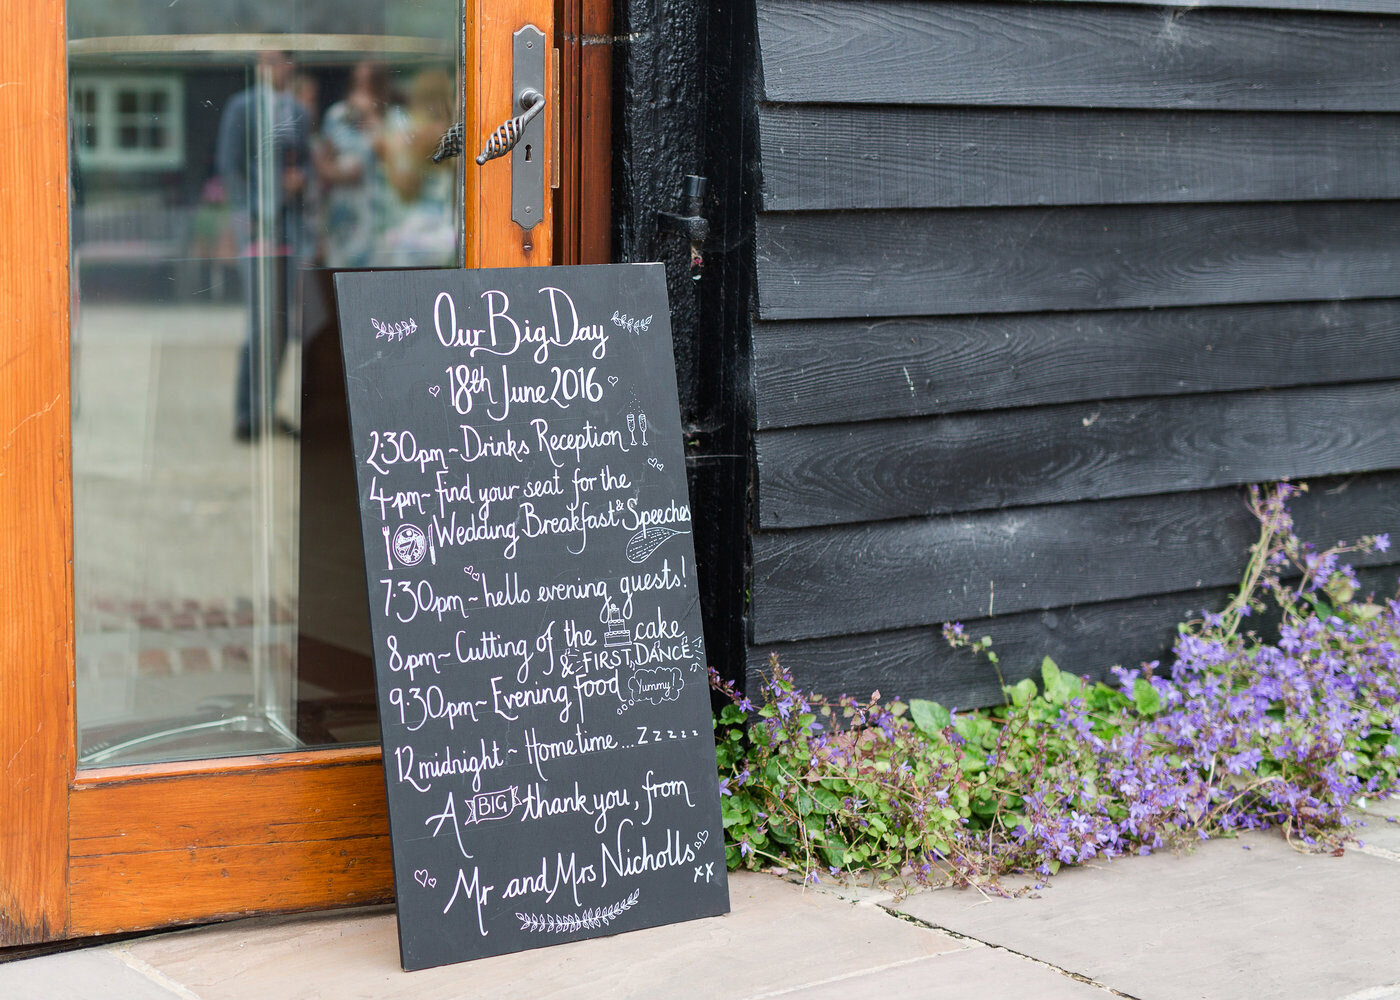 Our Big Day
18th June 2016
2.30pm~Drinks Reception
4pm~find your seat for the
Wedding Breakfast & Speeches
7.30pm~hello evening guests!
8pm~Cutting of the cake
& FIRST DANCE
9.30pm~Evening food Yummy!
12midnight~Hometime...Zzzzz
A BIG thank you, from
Mr and Mrs Nicholls
xx